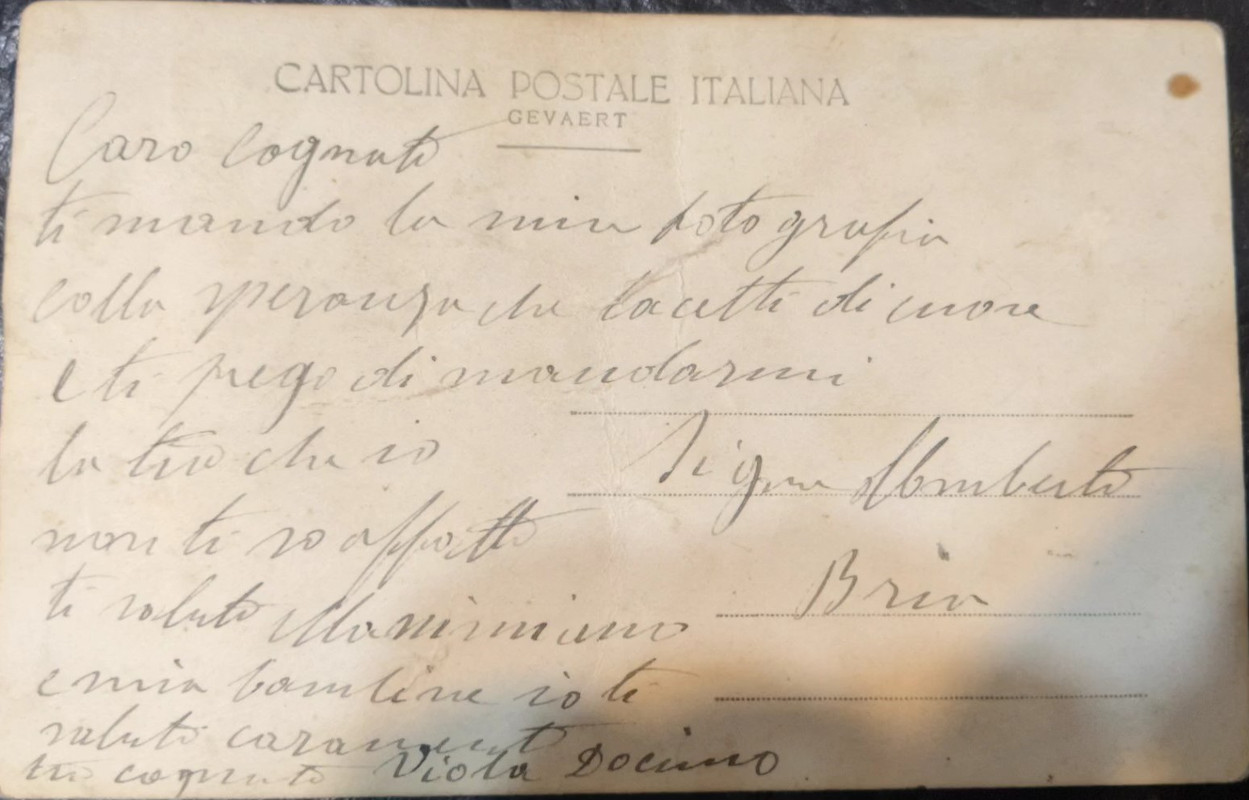 CARTOLINA POSTALE ITALIANA
GEVAERT
Caro Cognato
ti mando la mia fotografia
colla speranza che lacetti di cuore
e ti prego di mandarmi
la tua che io
non ti so affatto
ti saluto
e mia bambine io ti
saluto caramente
tuo cognato Viola Docimo
Umberto
Bria